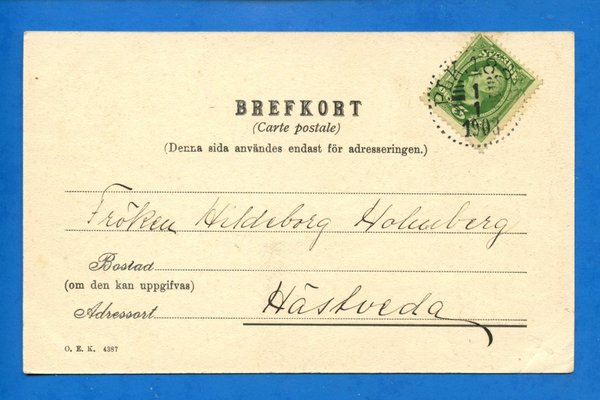 BREFKORT
(Carte postale)
(Denna sida användes endast för adresseringen.)
Fröken Hildeborg Holmberg
Bostad
(om den kan uppgifvas)
Adressort
Hästveda
O. E. K. 4387